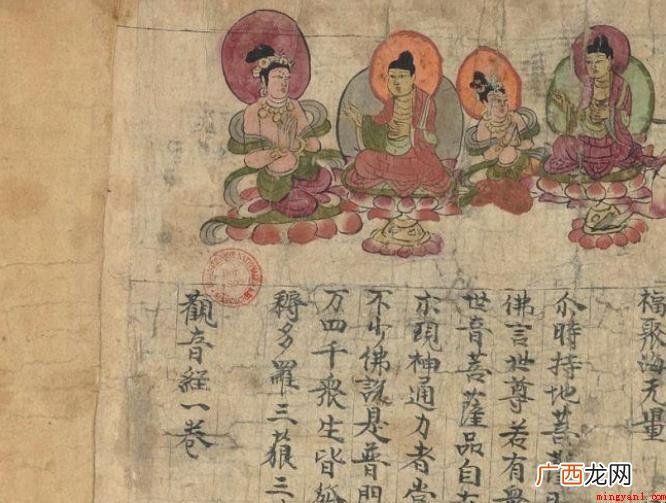 福聚海无量
尒時持地菩薩
佛言世尊若有
世音菩薩品自在
亦現神通力者當
不少佛說是普門
万四千衆生皆發
耨多羅三藐三
觀音經一卷
广西龙网